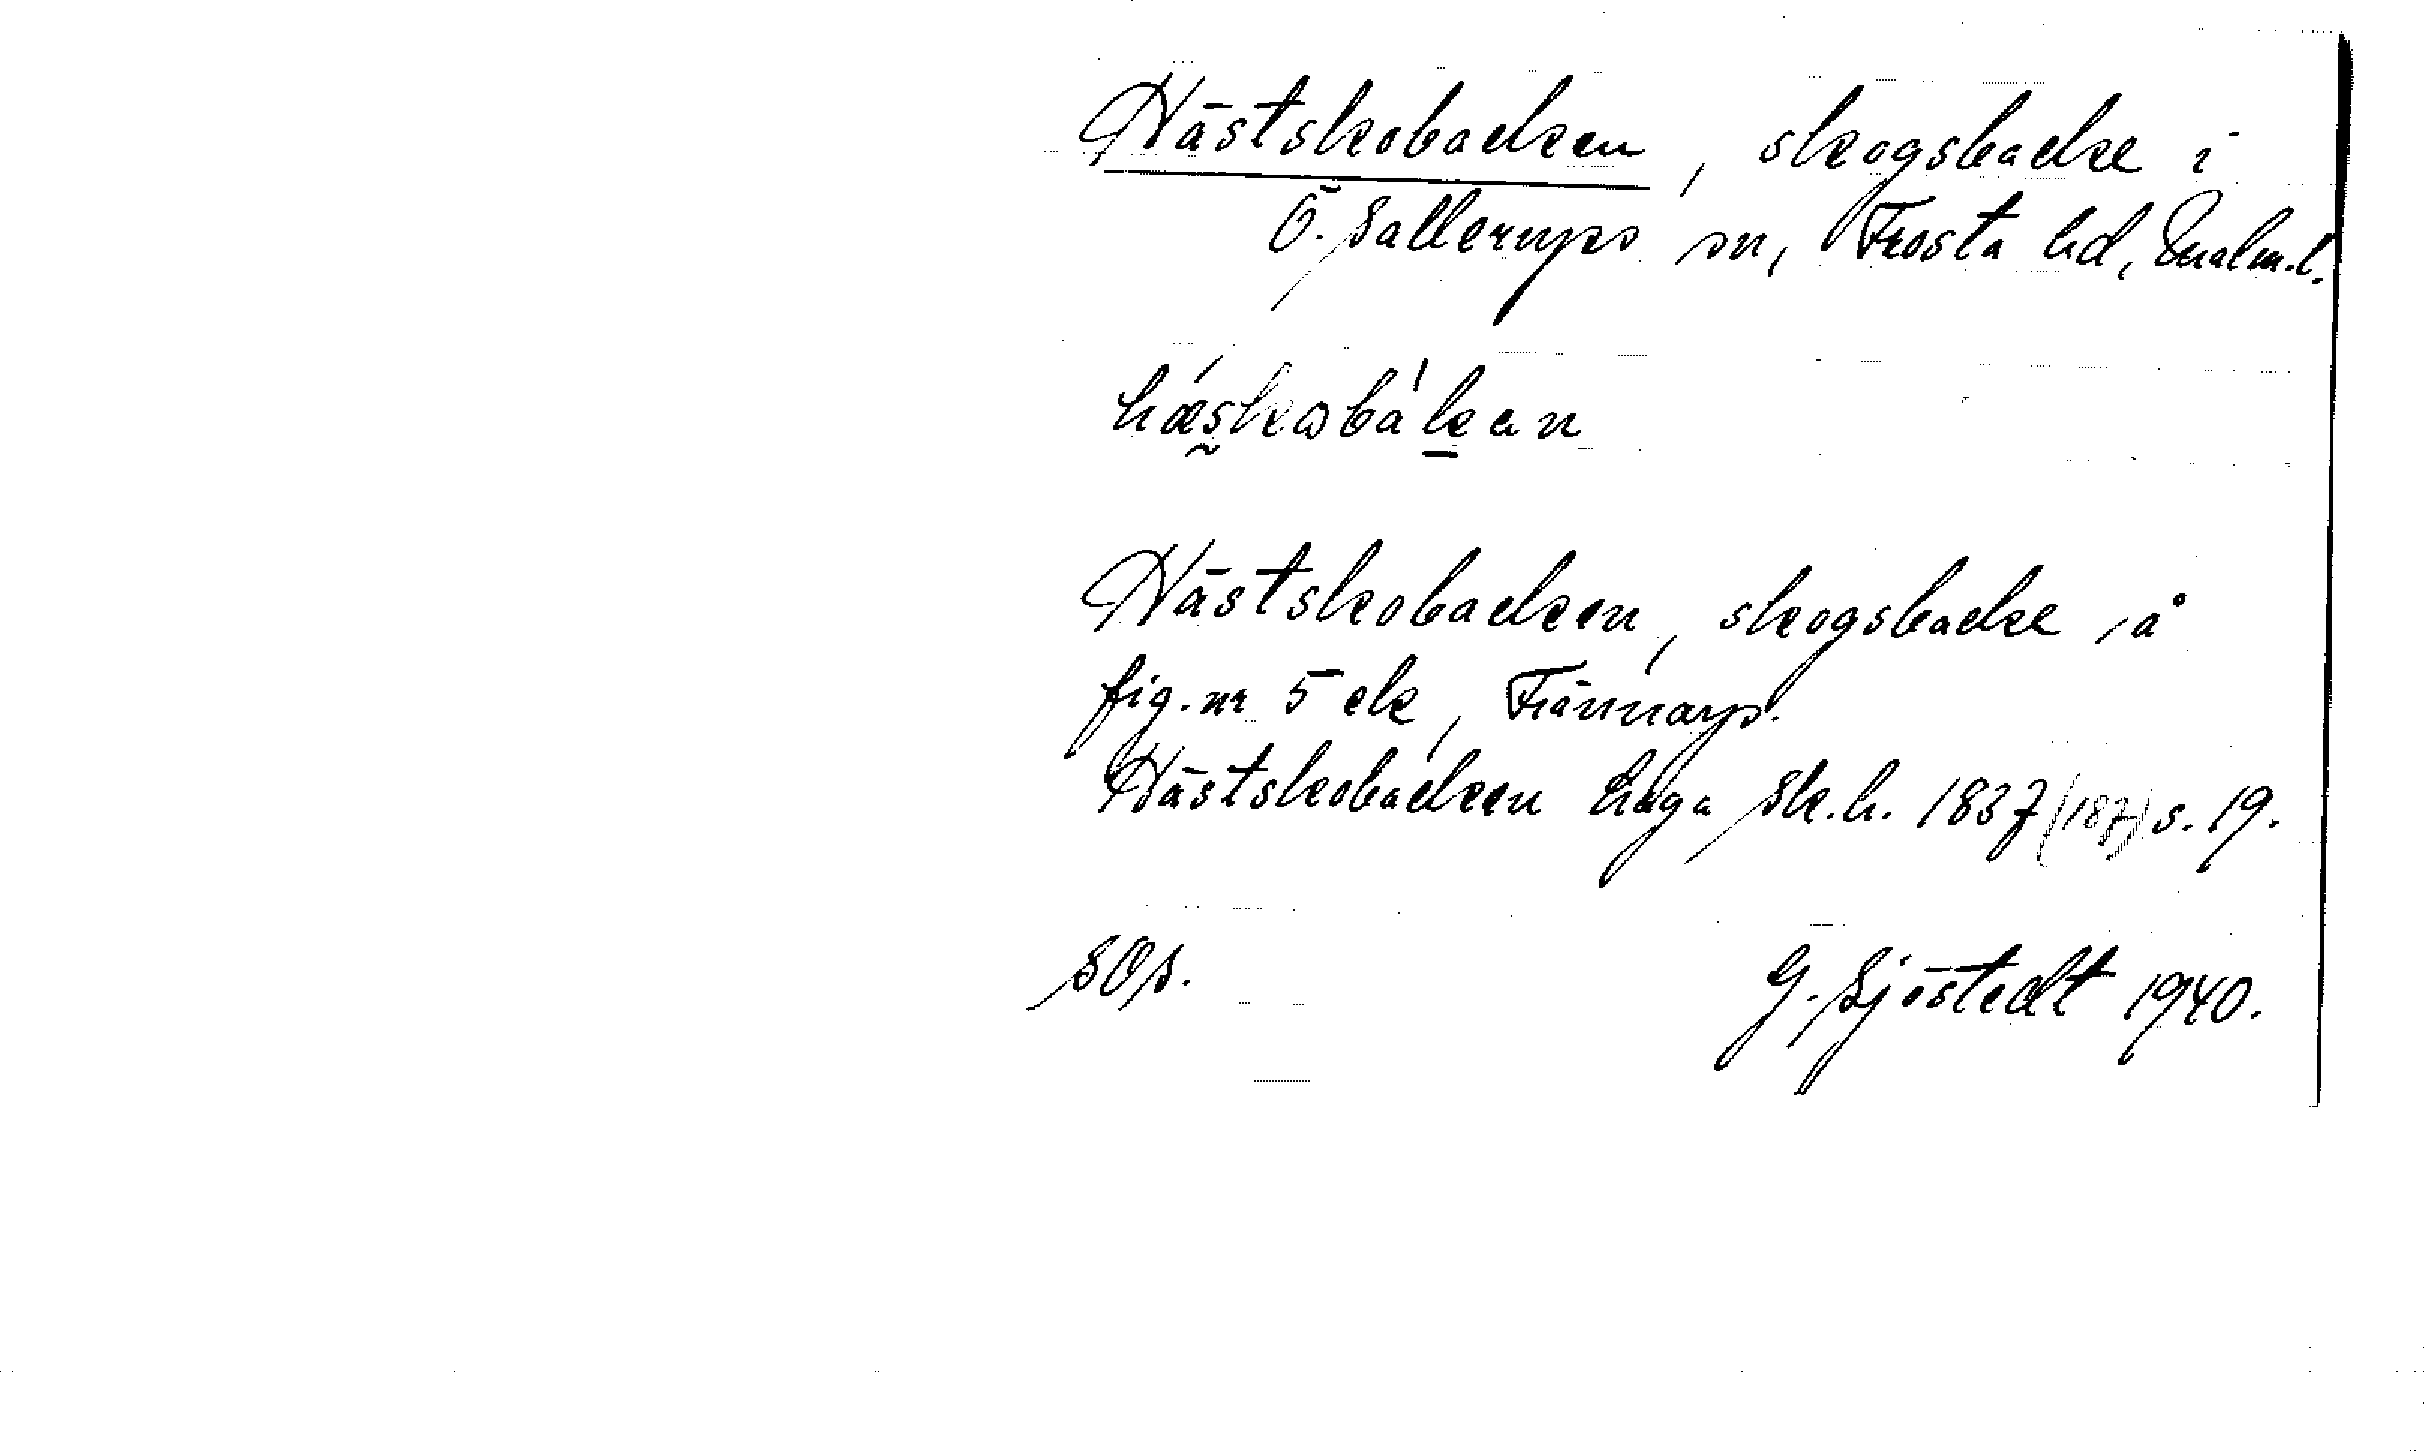 Hästskobacken, skogsbacke i
Ö. Sallerups sn, Frosta hd, Malm.l.
Hästskobacken, skogsbacke, å
fig. nr 5 ek, Frännarp.
Hästskobacken haga Sk.h. 1837 (187) s. 19.
SOS.
G. Sjöstedt 1940.